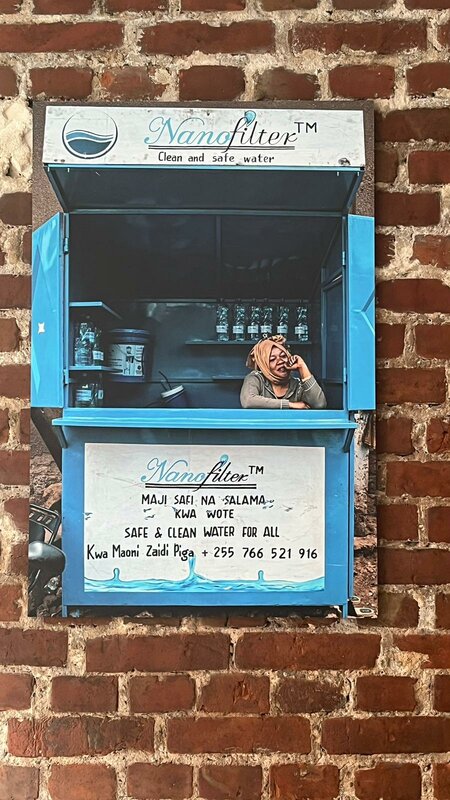 Nanofilter™
Clean and safe water
Nanofilter™
MAJI SAFI NA SALAMA
KWA WOTE
SAFE & CLEAN WATER FOR ALL
Kwa Maoni Zaidi Piga + 255 766 521 916